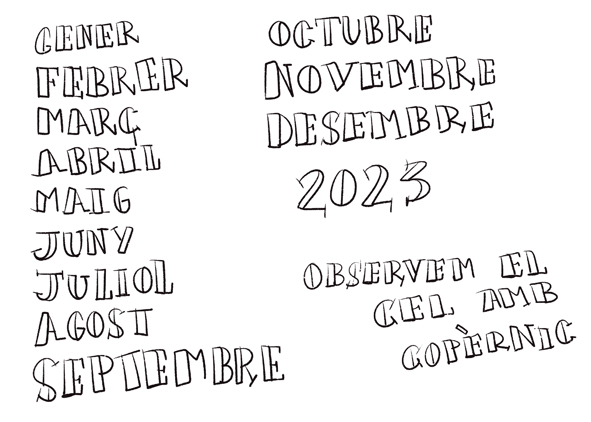 GENER
FEBRER
MARÇ
ABRIL
MAIG
JUNY
JULIOL
AGOST
SEPTEMBRE
OCTUBRE
NOVEMBRE
DESEMBRE
2023
OBSERVEM EL
CEL AMB
COPÈRNIC